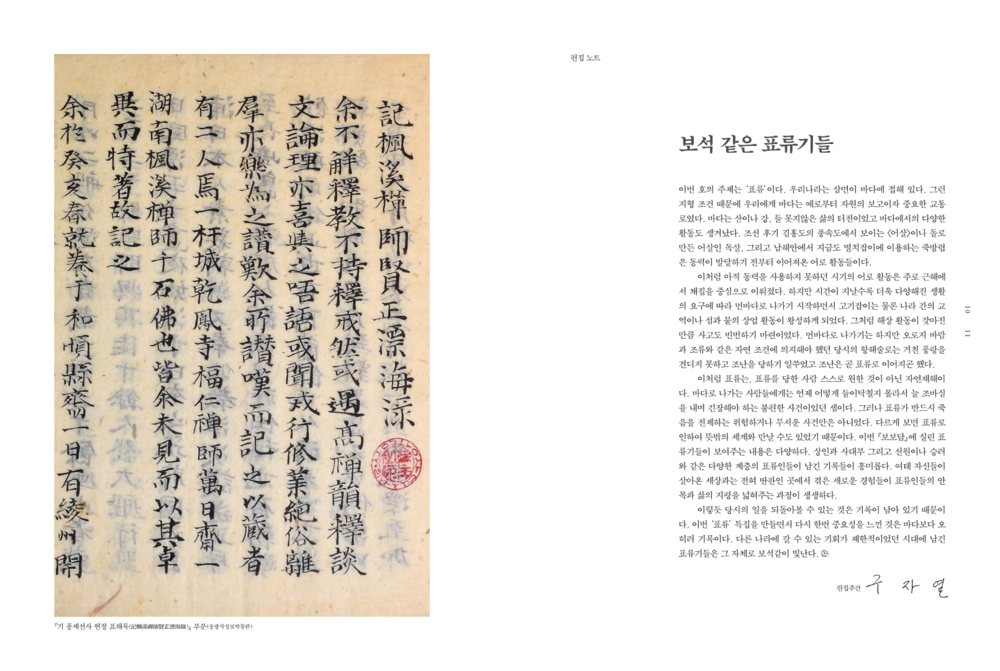 記楓溪禪師賢正漂海錄
余不解釋敎不持釋戒然或遇高禪韻釋談
文論理亦喜與之唔語或聞戒行修業絶俗離
羣亦樂為之讚歎余所讃嘆而記之以藏者
有二人焉一杆城乾鳳寺福仁禅師萬日齋一
湖南楓溪禅師千石佛也皆余未見而以其卓
異而特著故記之
余於癸亥春就養于和順縣齋一日有綾州開
『기 풍계선사 현정 표해록(記楓溪禪師賢正漂海錄)』 부분(송광사성보박물관)
편집 노트
보석 같은 표류기들
이번 호의 주제는 '표류'이다. 우리나라는 삼면이 바다에 접해 있다. 그런
지형 조건 때문에 우리에게 바다는 예로부터 자원의 보고이자 중요한 교통
로였다. 바다는 산이나 강, 들 못지않은 삶의 터전이었고 바다에서의 다양한
활동도 생겨났다. 조선 후기 김홍도의 풍속도에서 보이는 〈어살〉이나 돌로
만든 어살인 독살, 그리고 남해안에서 지금도 멸치잡이에 이용하는 죽방렴
은 동력이 발달하기 전부터 이어져온 어로 활동들이다.
이처럼 아직 동력을 사용하지 못하던 시기의 어로 활동은 주로 근해에
서 채집을 중심으로 이뤄졌다. 하지만 시간이 지날수록 더욱 다양해진 생활
의 요구에 따라 먼바다로 나가기 시작하면서 고기잡이는 물론 나라 간의 교
역이나 섬과 뭍의 상업 활동이 왕성하게 되었다. 그처럼 해상 활동이 잦아진
만큼 사고도 빈번하기 마련이었다. 먼바다로 나가기는 하지만 오로지 바람
과 조류와 같은 자연 조건에 의지해야 했던 당시의 항해술로는 거친 풍랑을
견디지 못하고 조난을 당하기 일쑤였고 조난은 곧 표류로 이어지곤 했다.
이처럼 표류는, 표류를 당한 사람 스스로 원한 것이 아닌 자연재해이
다. 바다로 나가는 사람들에게는 언제 어떻게 들이닥칠지 몰라서 늘 조바심
을 내며 긴장해야 하는 불편한 사건이었던 셈이다. 그러나 표류가 반드시 죽
음을 전제하는 위험하거나 무서운 사건만은 아니었다. 다르게 보면 표류로
인하여 뜻밖의 세계와 만날 수도 있었기 때문이다. 이번 『보보담』에 실린 표
류기들이 보여주는 내용은 다양하다. 상인과 사대부 그리고 선원이나 승려
와 같은 다양한 계층의 표류인들이 남긴 기록들이 흥미롭다. 여태 자신들이
살아온 세상과는 전혀 딴판인 곳에서 겪은 새로운 경험들이 표류인들의 안
목과 삶의 지평을 넓혀주는 과정이 생생하다.
이렇듯 당시의 일을 되돌아볼 수 있는 것은 기록이 남아 있기 때문이
다. 이번 '표류' 특집을 만들면서 다시 한번 중요성을 느낀 것은 바다보다 오
히려 기록이다. 다른 나라에 갈 수 있는 기회가 제한적이었던 시대에 남긴
표류기들은 그 자체로 보석같이 빛난다.
편집주간 구 자 열
10
11